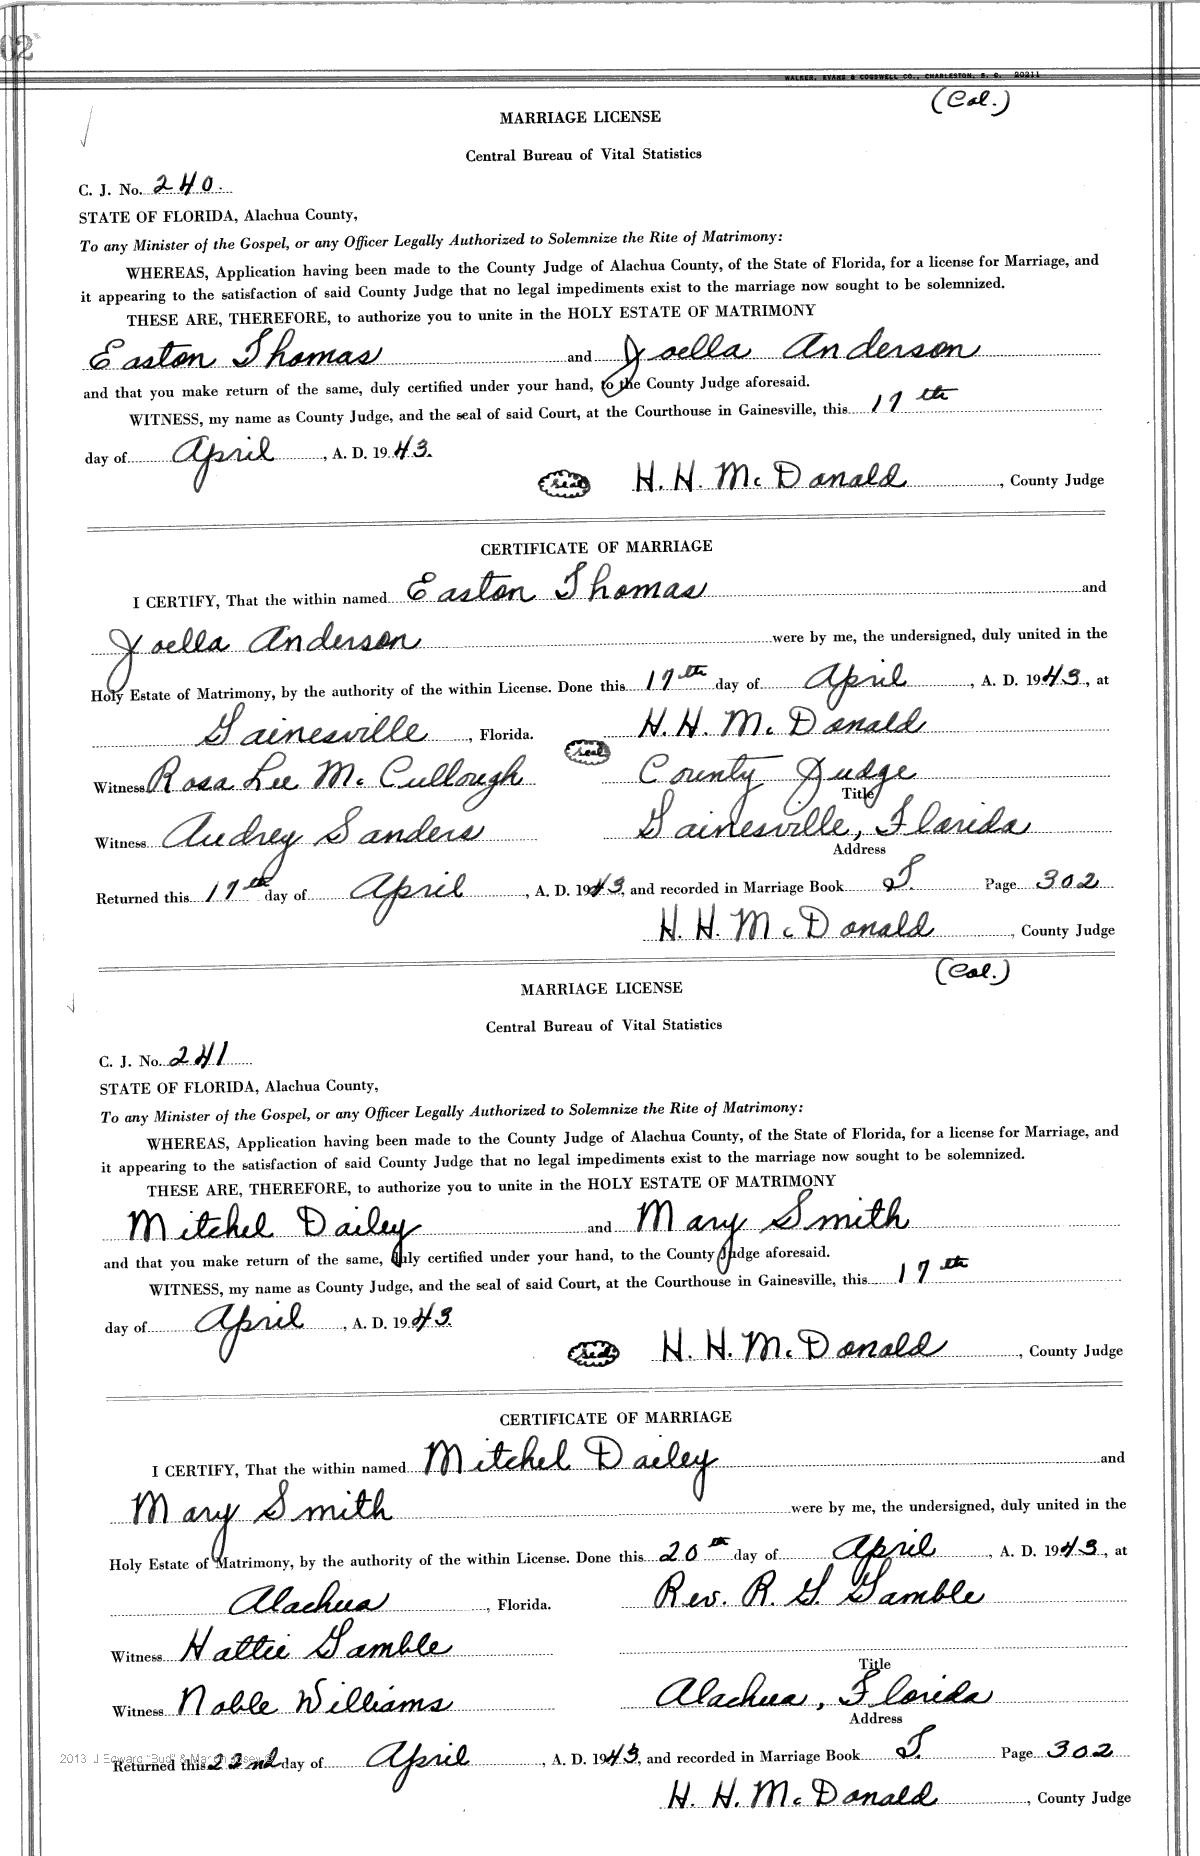 302
WALKER, EVANS & COGSWELL CO., CHARLESTON, S. C. 20211
(Col.)
MARRIAGE LICENSE
Central Bureau of Vital Statistics
C. J. No. 240.
STATE OF FLORIDA, Alachua County,
To any Minister of the Gospel, or any Officer Legally Authorized to Solemnize the Rite of Matrimony:
WHEREAS, Application having been made to the County Judge of Alachua County, of the State of Florida, for a license for Marriage, and
it appearing to the satisfaction of said County Judge that no legal impediments exist to the marriage now sought to be solemnized.
THESE ARE, THEREFORE, to authorize you to unite in the HOLY ESTATE OF MATRIMONY
Easton Thomas and Joella Anderson
and that you make return of the same, duly certified under your hand, to the County Judge aforesaid.
WITNESS, my name as County Judge, and the seal of said Court, at the Courthouse in Gainesville, this 17th
day of April, A. D. 1943.
seal H. H. McDonald, County Judge
CERTIFICATE OF MARRIAGE
I CERTIFY, That the within named Easton Thomas and
Joella Anderson were by me, the undersigned, duly united in the
Holy Estate of Matrimony, by the authority of the within License. Done this 17th day of April, A. D. 1943, at
Gainesville, Florida. H. H. McDonald
seal
Witness Rosa Lee McCullough County Judge
Title
Witness Audrey Sanders Gainesville, Florida
Address
Returned this 17th day of April, A. D. 1943, and recorded in Marriage Book T Page 302
H. H. McDonald, County Judge
(Col.)
MARRIAGE LICENSE
Central Bureau of Vital Statistics
C. J. No. 241
STATE OF FLORIDA, Alachua County,
To any Minister of the Gospel, or any Officer Legally Authorized to Solemnize the Rite of Matrimony:
WHEREAS, Application having been made to the County Judge of Alachua County, of the State of Florida, for a license for Marriage, and
it appearing to the satisfaction of said County Judge that no legal impediments exist to the marriage now sought to be solemnized.
THESE ARE, THEREFORE, to authorize you to unite in the HOLY ESTATE OF MATRIMONY
Mitchel Dailey and Mary Smith
and that you make return of the same, duly certified under your hand, to the County Judge aforesaid.
WITNESS, my name as County Judge, and the seal of said Court, at the Courthouse in Gainesville, this 17th
day of April, A. D. 1943.
seal H. H. McDonald, County Judge
CERTIFICATE OF MARRIAGE
I CERTIFY, That the within named Mitchel Dailey and
Mary Smith were by me, the undersigned, duly united in the
Holy Estate of Matrimony, by the authority of the within License. Done this 20th day of April, A. D. 1943, at
Alachua, Florida. Rev. R. G. Gamble
Witness Hattie Gamble
Title
Witness Noble Williams Alachua, Florida
Address
2013 J Edward "Bud" &
Returned this 22nd day of April, A. D. 1943, and recorded in Marriage Book T Page 302
H. H. McDonald, County Judge